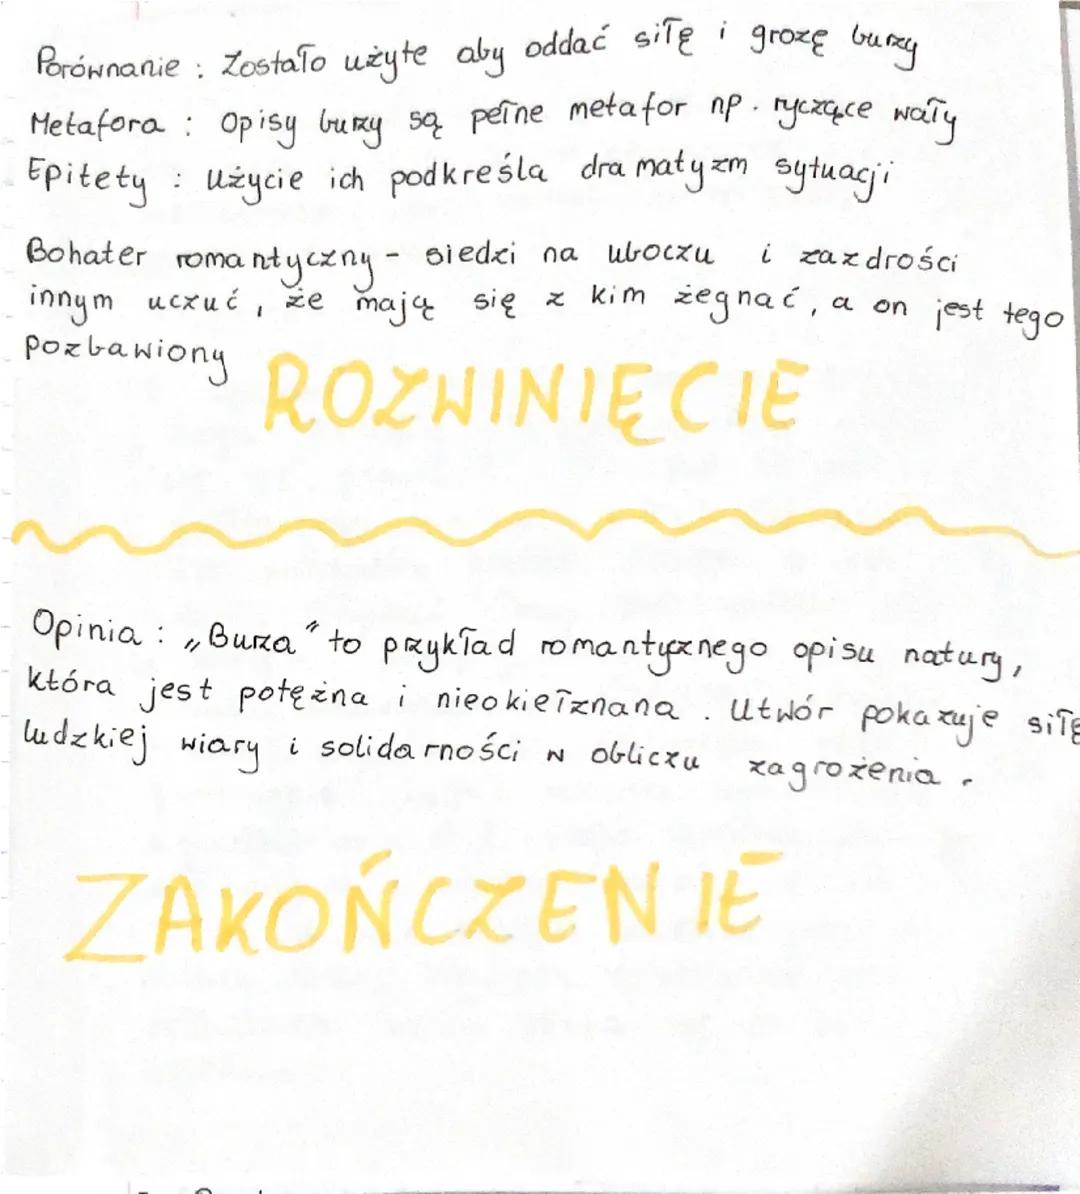 Porównanie : Zostało użyte aby oddać siłę i grozę burzy
Metafora : Opisy burzy są pełne metafor np. ryczące wały
Epitety : Użycie ich podkreśla dramatyzm sytuacji
Bohater romantyczny - siedzi na uboczu i zazdrości
innym uczuć, że mają się z kim żegnać, a on jest tego
pozbawiony
ROZWINIĘCIE
Opinia : „Burza" to przykład romantycznego opisu natury,
która jest potężna i nieokiełznana. Utwór pokazuje siłę
ludzkiej wiary i solidarności w obliczu zagrożenia.
ZAKOŃCZENIE